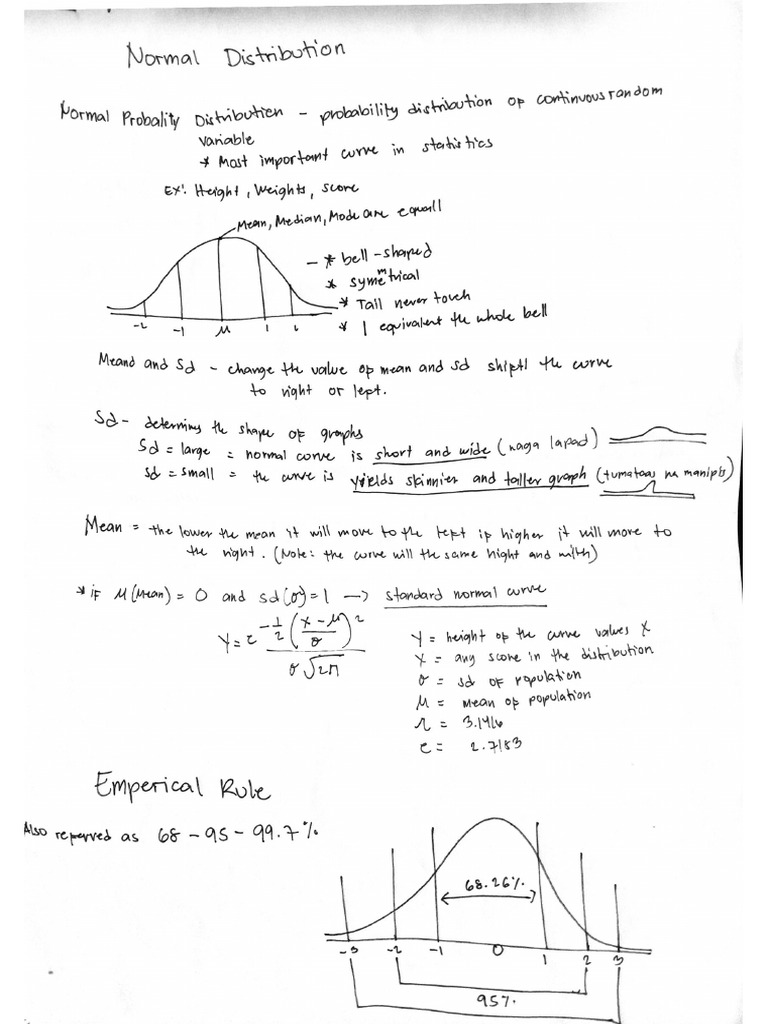 Normal Distribution
Normal Probality Distribution - probability distribution of continuous random
variable
* Most important curve in statistics
Ex: Height, Weights, score
Mean, Median, Mode are equall
- * bell-shaped
* symetrical
m
* Tail never touch
* 1 equivalent the whole bell
-2 -1 μ 1 2
Meand and Sd - change the value of mean and sd shiftl the curve
to right or left.
Sd - determins the shape of graphs
Sd = large = normal curve is short and wide (naga lapad)
sd = small = the curve is yields skinnier and taller graph (tumataas na manipis)
Mean = the lower the mean it will move to the left if higher it will move to
the right. (Note: the curve will the same hight and width)
* if μ (Mean) = 0 and sd (σ) = 1 -> standard normal curve
Y = e -1/2 (x - μ / σ)² / σ √2π
Y = height of the curve values X
X = any score in the distribution
σ = sd of population
μ = mean of population
π = 3.1416
e = 2.7183
Emperical Rule
Also referred as 68 - 95 - 99.7%
68.26%
-3 -2 -1 0 1 2 3
95%